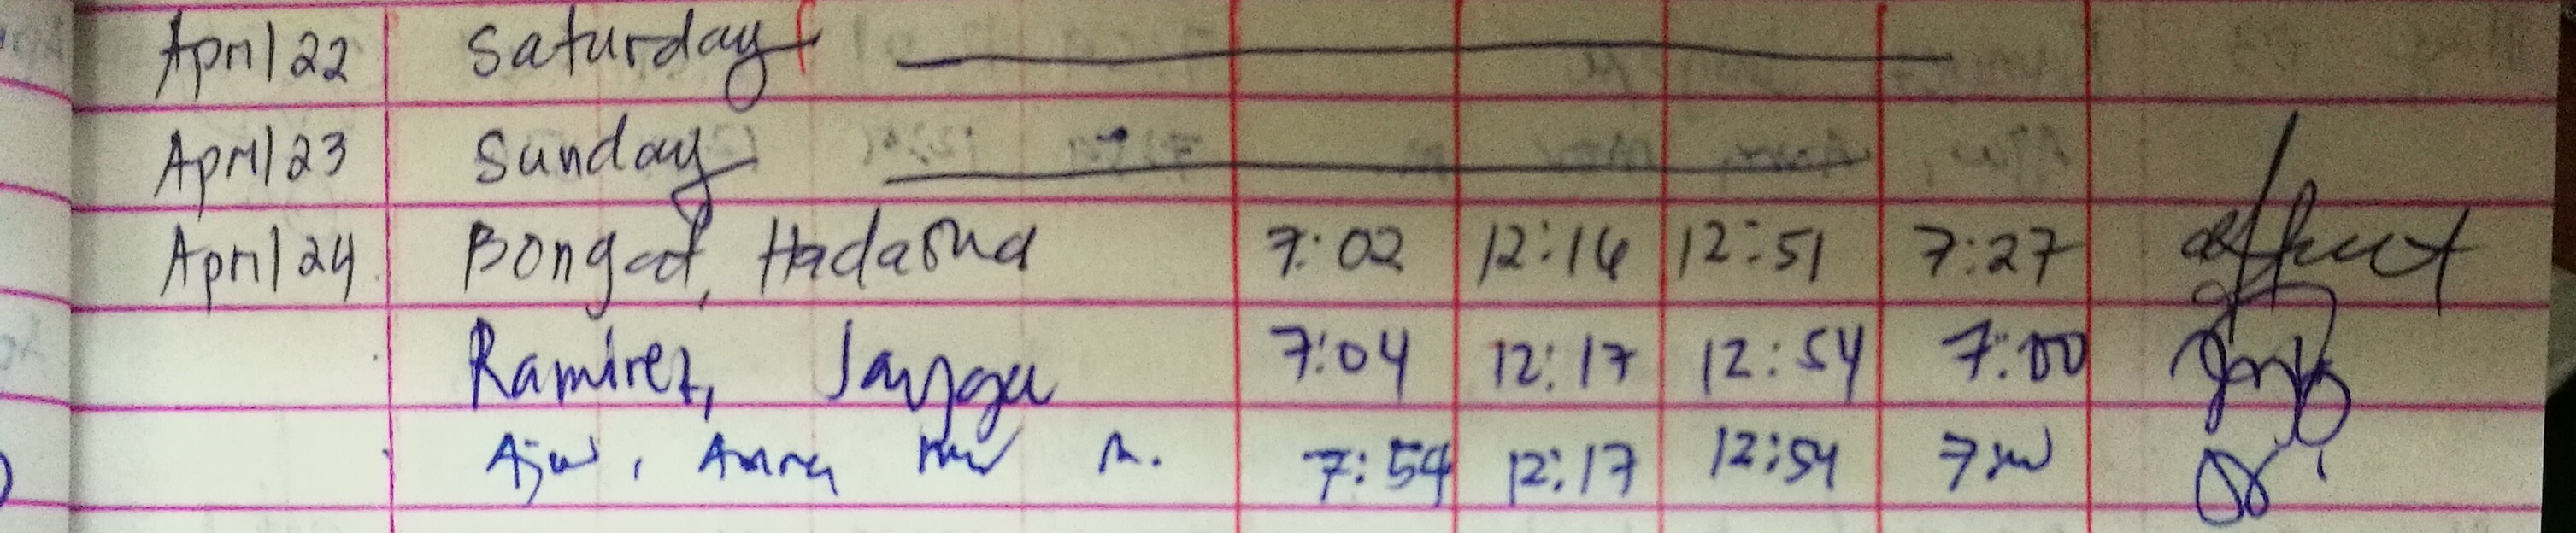 April 22 Saturday
April 23 Sunday
April 24 Bongat, Hadasha 7:02 12:16 12:51 7:27
Ramirez, 7:04 12:17 12:54 7:00
Anna M. 7:54 12:17 12:54